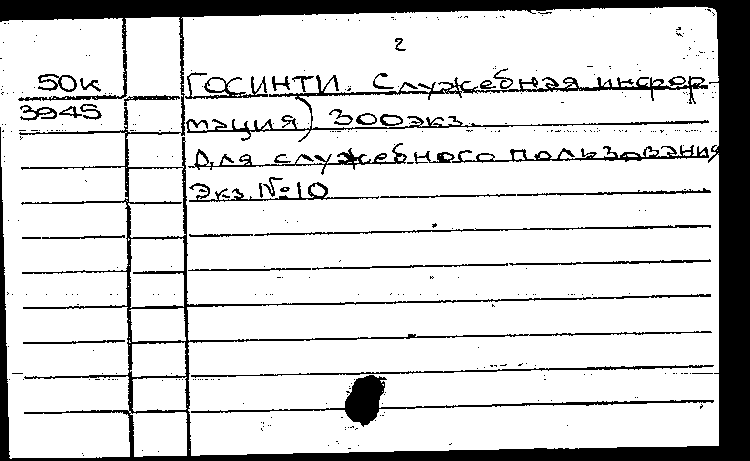 2
50к
3945
ГОСИНТИ. Служебная инфор-
мация) 300экз.
Для служебного пользования
Экз. №10